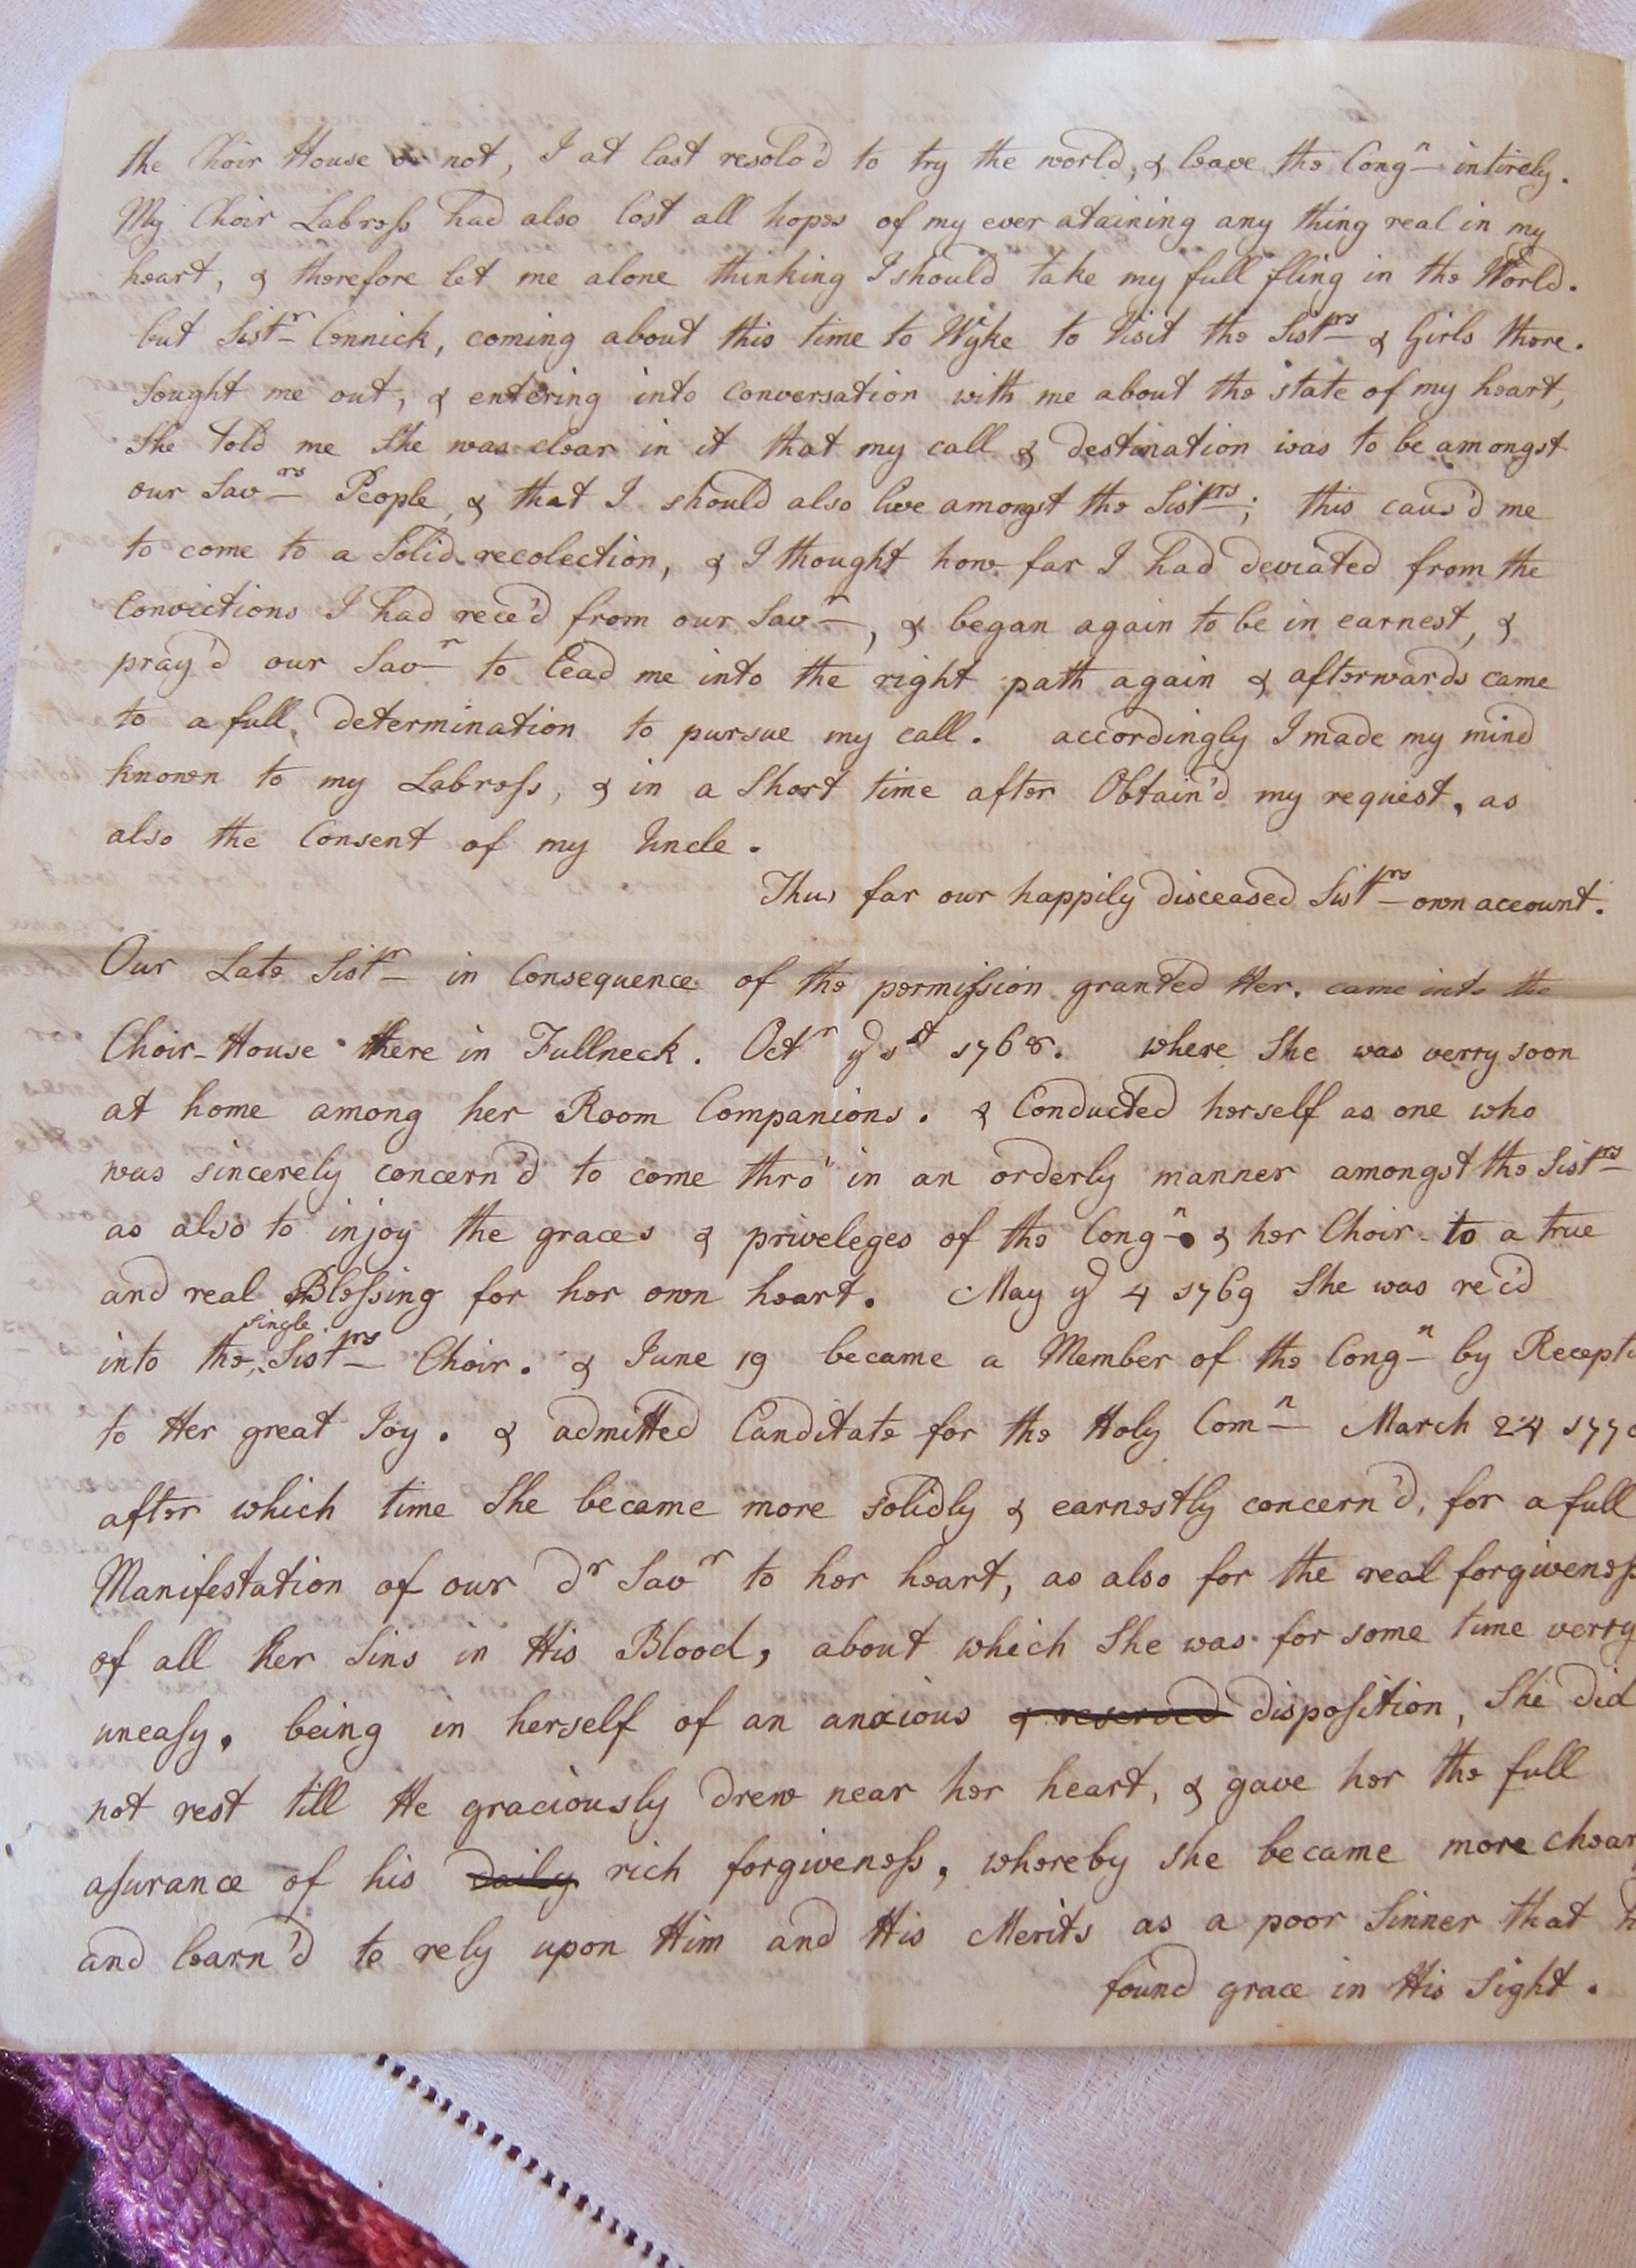 the Choir House or not, I at last resolv'd to try the world, & leave the Congn intirely.
My Choir Labress had also lost all hopes of my ever ataining any thing real in my
heart, & therefore let me alone thinking I should take my full fling in the World.
but Sistr Connick, coming about this time to Wyke to Visit the Sistrs & Girls there.
Sought me out, & entering into conversation with me about the state of my heart,
She told me She was clear in it that my call & destination was to be amongst
our Savrs People, & that I should also live amongst the Sistrs; this caus'd me
to come to a Solid recolection, & I thought how far I had deviated from the
Convictions I had rece'd from our Savr, & began again to be in earnest, &
pray'd our Savr to lead me into the right path again & afterwards came
to a full determination to pursue my call. accordingly I made my mind
known to my Labress, & in a Short time after Obtain'd my request, as
also the Consent of my Uncle.
Thus far our happily disceased Sistrs own account.
Our Late Sistr in Consequence of the permission granted Her. came into the
Choir-House there in Fullneck. Octr ye 1st 1768. where She was verry soon
at home among her Room Companions. & Conducted herself as one who
was sincerely concern'd to come thro' in an orderly manner amongst the Sistrs
as also to injoy the graces & priveleges of the Congn & her Choir to a true
and real Blessing for her own heart. May ye 4 1769 She was re'cd
into the single Sistrs Choir. & June 19 became a Member of the Congn by Recept
to Her great Joy. & admitted Canditate for the Holy Comn March 24 177
after which time She became more solidly & earnestly concern'd, for a full
Manifestation of our dr Savr to her heart, as also for the real forgiveness
of all her Sins in His Blood, about which She was for some time verry
uneasy. being in herself of an anxious & reserved disposition, She did
not rest till He graciously drew near her heart, & gave her the full
asurance of his daily rich forgiveness, whereby she became more chear
and learn'd to rely upon Him and His Merits as a poor Sinner that h
found grace in His Sight.